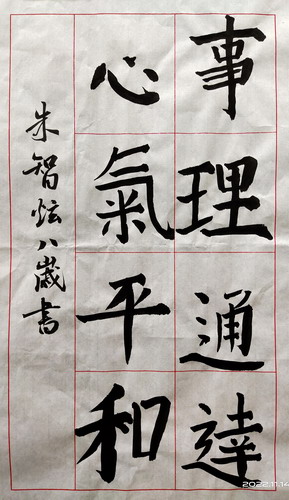 事理通達
心氣平和
朱智炫八歲書
2022.11.14